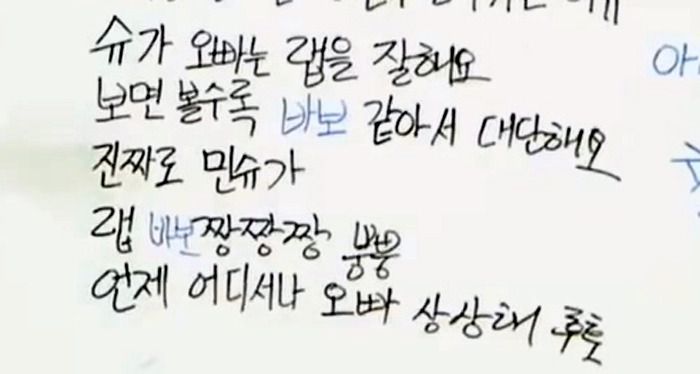 슈가 오빠는 랩을 잘해요
보면 볼수록 바보 같아서 대단해요
진짜로 민슈가
랩 바보 짱짱짱 뿡뿡
언제 어디서나 오빠 상상해